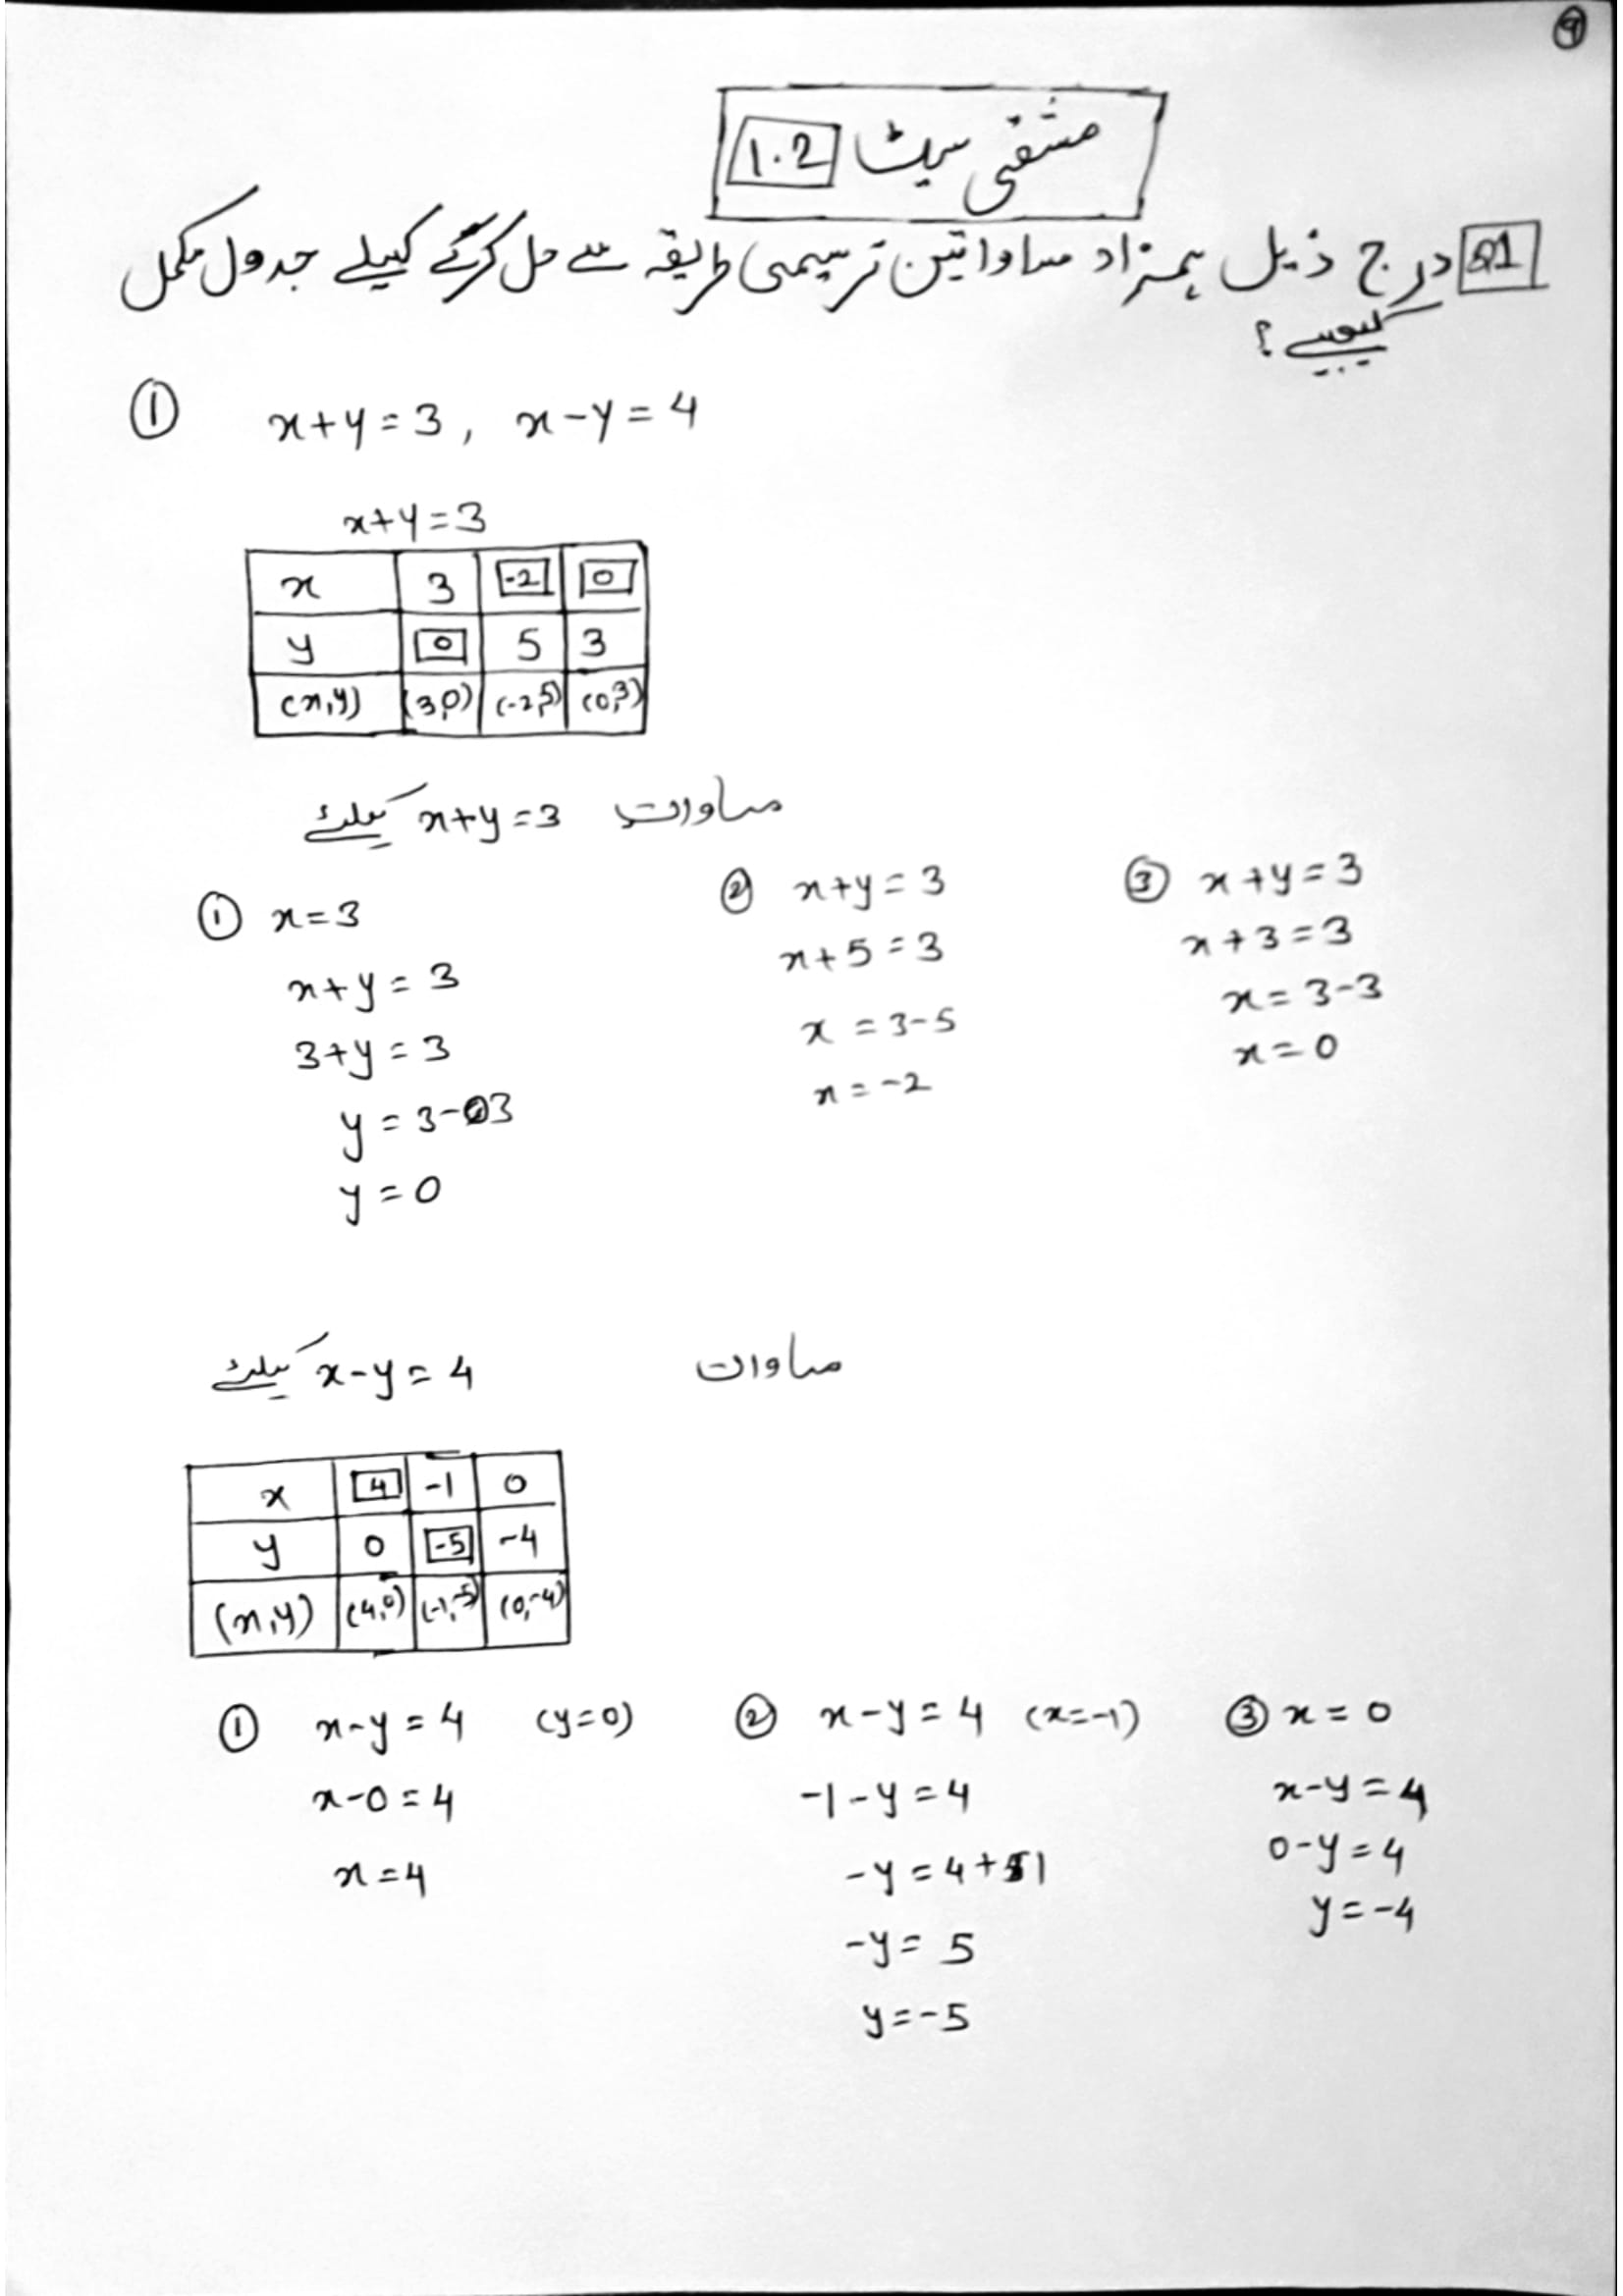 9
مشقی سیٹ 1.2
Q1 درج ذیل ہمزاد مساواتیں ترسیمی طریقہ سے حل کرنے کیلے جدول مکمل
کیجیے ؟
① x+y=3, x-y=4
x+y=3
x 3 -2 0
y 0 5 3
(x,y) (3,0) (-2,5) (0,3)
مساوات x+y=3 کیلئے
① x=3
x+y=3
3+y=3
y=3-3
y=0
② x+y=3
x+5=3
x=3-5
x=-2
③ x+y=3
x+3=3
x=3-3
x=0
مساوات x-y=4 کیلئے
x 4 -1 0
y 0 -5 -4
(x,y) (4,0) (-1,-5) (0,-4)
① x-y=4 (y=0)
x-0=4
x=4
② x-y=4 (x=-1)
-1-y=4
-y=4+1
-y=5
y=-5
③ x=0
x-y=4
0-y=4
y=-4